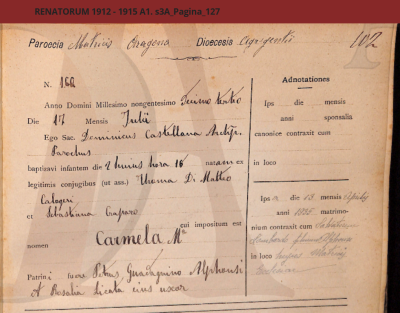 RENATORUM 1912 - 1915 A1. s3A_Pagina_127
Paroecia Matricis Aragona Diocesis Agrigenti
102
N. 166
Anno Domini Millesimo nongentesimo
Die 17 Mensis Julii
Ego Sac. Dominicus Castellana Archip.
Parochus
baptizavi infantem die hora 16 natam ex
legitimis conjugibus (ut ass.) Di Matteo
Calogeri
et Sebastiana
cui impositum est
nomen Carmela Ma
Patrini fuere Petrus, Guadagnino Alphonsi
et Rosalia Licata eius uxor
Adnotationes
Ips die mensis
anni sponsalia
canonice contraxit cum
in loco
Ips a die 13 mensis
anni matrimo-
nium contraxit cum
in loco